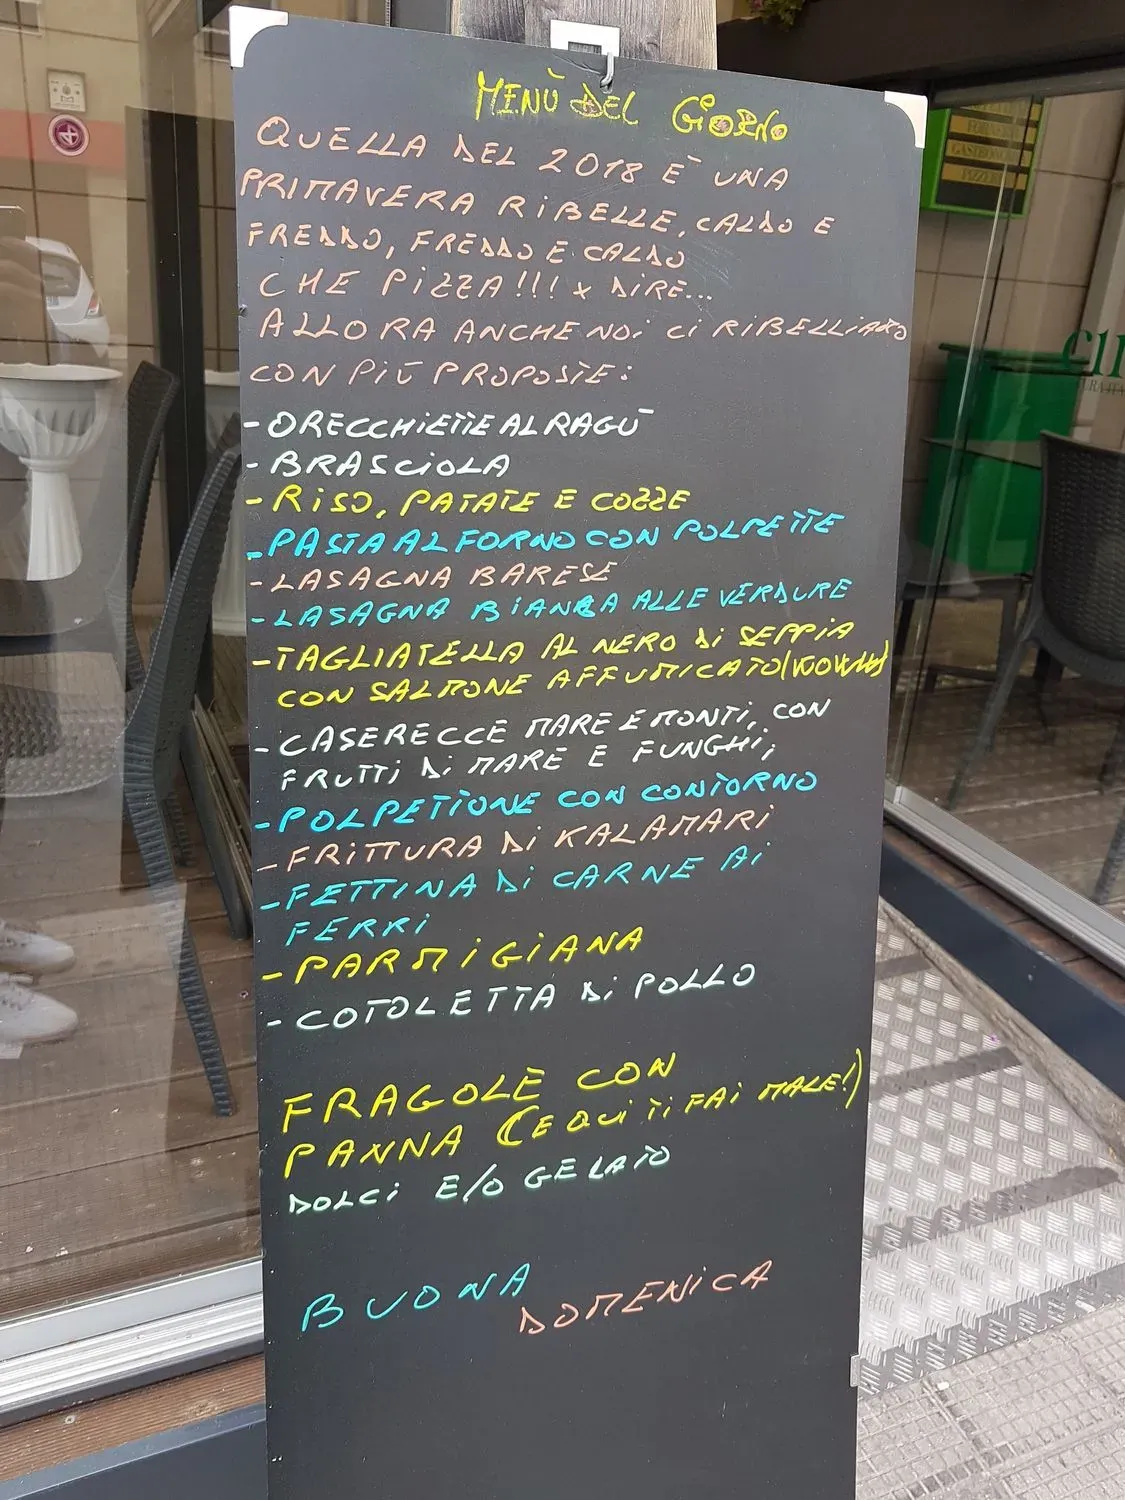 MENÙ DEL GIORNO
QUELLA DEL 2018 È UNA
PRIMAVERA RIBELLE, CALDO E
FREDDO, FREDDO E CALDO
CHE PIZZA!!! X DIRE...
ALLORA ANCHE NOI CI RIBELLIAMO
CON PIÙ PROPOSTE:
- ORECCHIETTE AL RAGÙ
- BRASCIOLA
- RISO, PATATE E COZZE
- PASTA AL FORNO CON POLPETTE
- LASAGNA BARESE
- LASAGNA BIANCA ALLE VERDURE
- TAGLIATELLA AL NERO DI SEPPIA
CON SALMONE AFFUMICATO(WOWW)
- CASERECCE MARE E MONTI, CON
FRUTTI DI MARE E FUNGHI;
- POLPETTONE CON CONTORNO
- FRITTURA DI KALAMARI
- FETTINA DI CARNE AI
FERRI
- PARMIGIANA
- COTOLETTA DI POLLO
FRAGOLE CON
PANNA (E QUI TI FAI MALE!)
DOLCI E/O GELATO
BUONA
DOMENICA